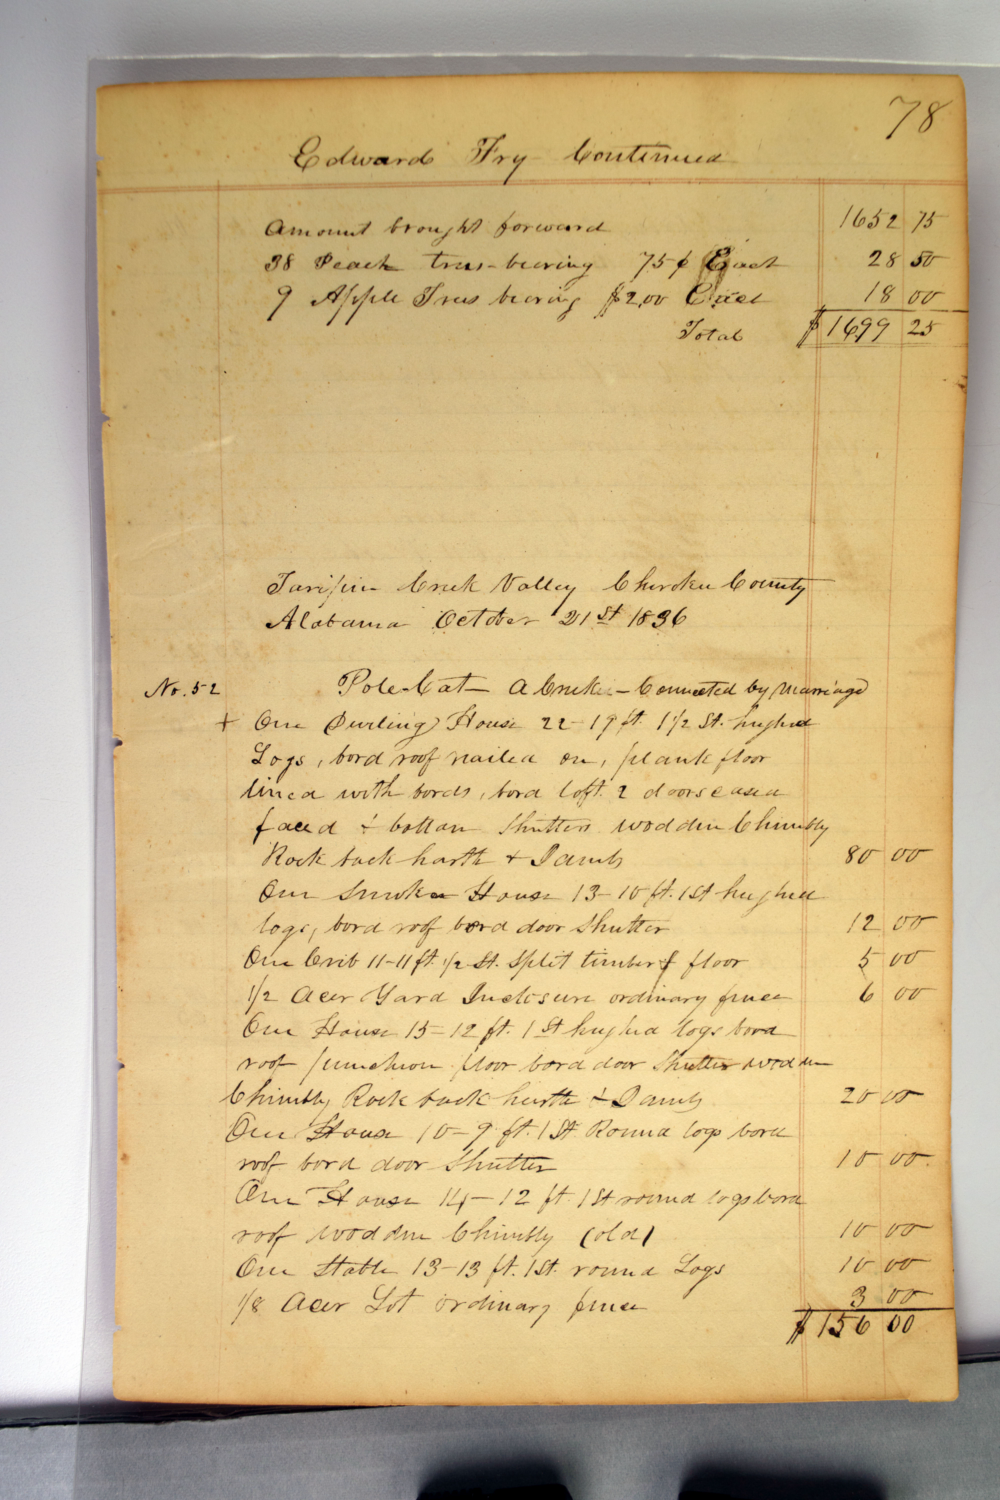 78
Edward Fry Continued
Amount brought forward 1652 75
38 Peach trees bearing 75¢ Each 28 50
9 Apple Trees bearing $2,00 Each 18 00
Total $1699 25
Taripin Creek Valley Cherokee County
Alabama October 21st 1836
No. 52 Pole-Cat - A Creek - Connected by Marriage
+ One Dwelling House 22-19 ft. 1 1/2 St. hughed
Logs, bord roof nailed on, plank floor
lined with bords, bord loft. 2 doors cased
faced & batton Shutters wodden Chimbly
Rock back harth & Jambs 80 00
One Smoke House 13-10 ft. 1 St hughed
logs, bord roof bord door Shutter 12 00
One Crib 11-11 ft. 1/2 St. Split timber & floor 5 00
1/2 Acer Yard Inclosure ordinary fence 6 00
One House 15-12 ft. 1 St hughed logs bord
roof punchion floor bord door Shutter wodden
Chimbly Rock back harth & Jambs 20 00
One House 10-9 ft. 1 St. Round logs bord
roof bord door Shutter 10 00
One House 14-12 ft. 1 St round logs bord
roof wodden Chimbly (old) 10 00
One Stable 13-13 ft. 1 St. round Logs 10 00
1/8 Acer Lot ordinary fence 3 00
$156 00